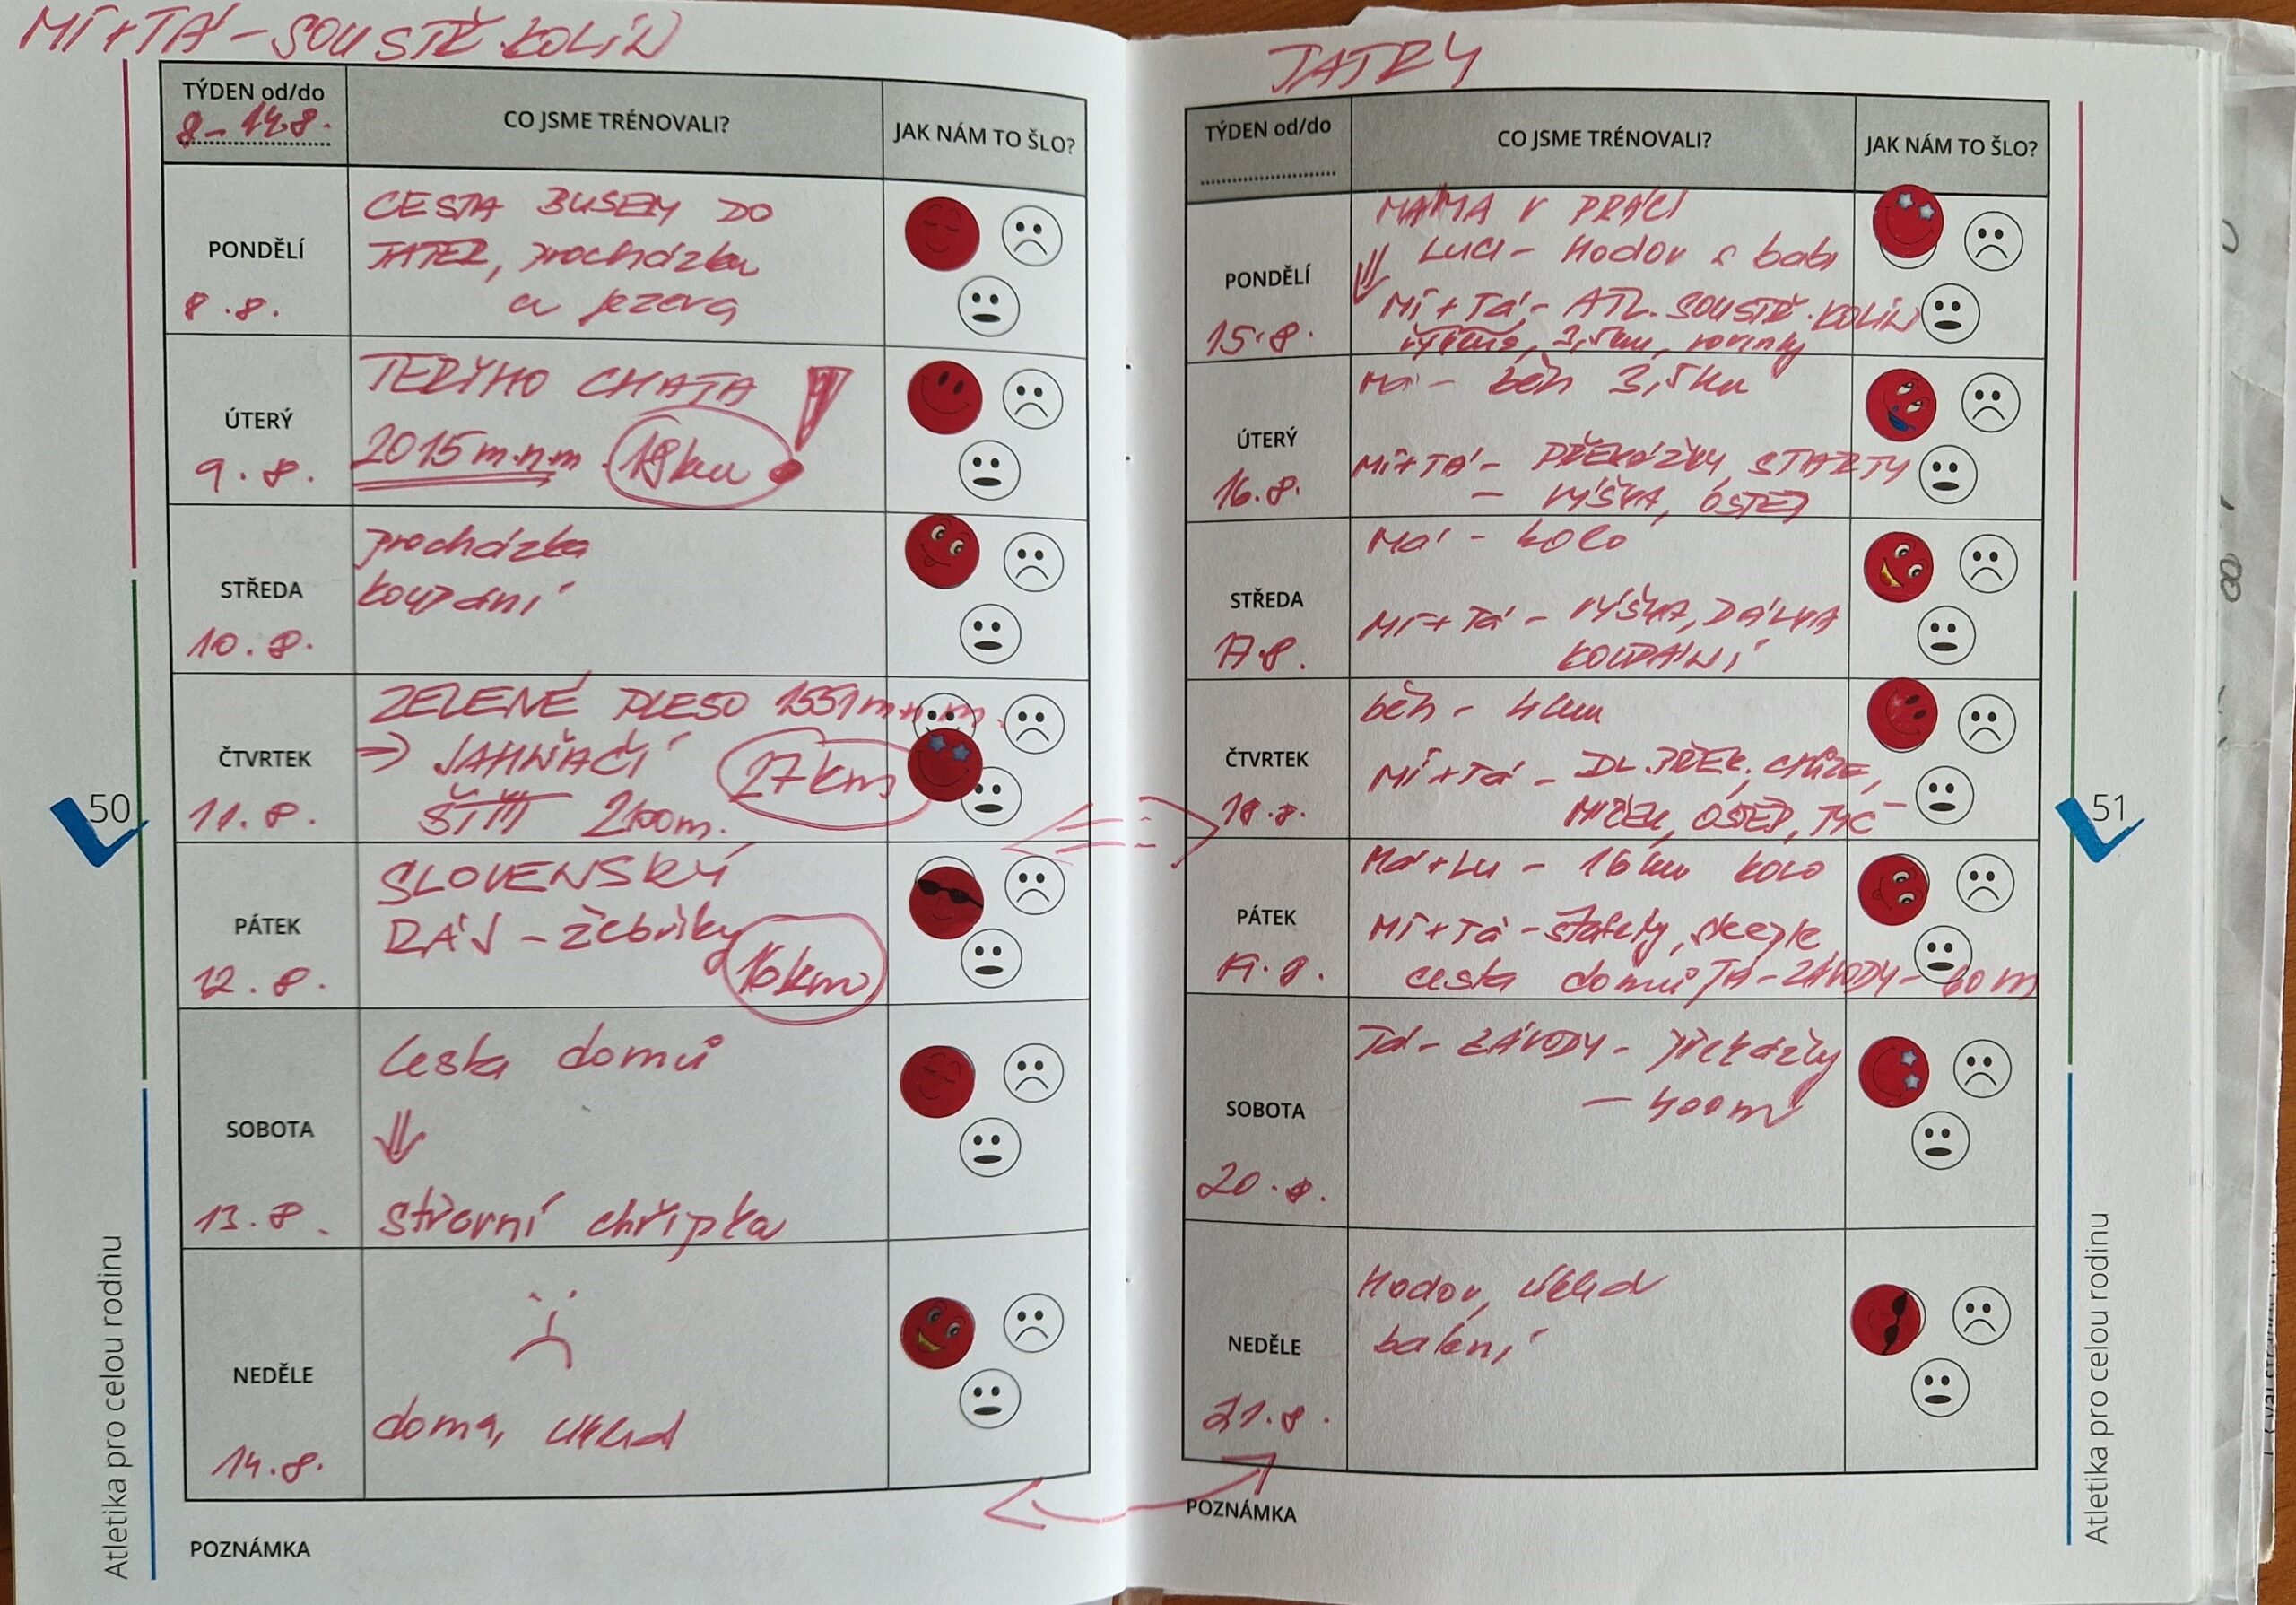 MÍ+TÁ - SOUSTŘ. KOLÍN
TÝDEN od/do
8.-14.8.
CO JSME TRÉNOVALI?
JAK NÁM TO ŠLO?
PONDĚLÍ
8.8.
CESTA BUSEM DO
TATER, procházka
u jezera
ÚTERÝ
9.8.
TERYHO CHATA
2015 m.n.m. 18km!
STŘEDA
10.8.
procházka
koupání
ČTVRTEK
11.8.
ZELENÉ PLESO 1551 m.n.m.
⇒ JAHŇAČÍ 27km
ŠTÍT
PÁTEK
12.8.
SLOVENSKÝ
RÁJ - žebříky
16km
SOBOTA
13.8.
cesta domů
⇓
střevní chřipka
NEDĚLE
14.8.
doma, úklid
POZNÁMKA
50
Atletika pro celou rodinu
TATRY
TÝDEN od/do
CO JSME TRÉNOVALI?
JAK NÁM TO ŠLO?
PONDĚLÍ
15.8.
MAMA V PRÁCI
⇓ Luci - Hodov s babi
Mí+Tá - ATL. SOUSTŘ. KOLÍN
3,5km, rovinky
ÚTERÝ
16.8.
Má - běh 3,5km
Mí+TÁ - PŘEKÁŽKY, STARTY
- VÝŠKA, OŠTĚP
STŘEDA
17.8.
Má - kolo
Mí+Tá - VÝŠKA, DÁLKA
KOUPÁNÍ
ČTVRTEK
18.8.
běh - 4km
Mí+Tá - DL. PŘEK, CHŮZE,
MÍČEK, OŠTĚP, TYČ
PÁTEK
19.8.
Má+Lu - 16km kolo
Mí+Tá - štafety, steeple
cesta domů TÁ - ZÁVODY - 60m
SOBOTA
20.8.
Tá - ZÁVODY - překážky
- 400m
NEDĚLE
21.8.
Hodov, úklid
balení
POZNÁMKA
51
Atletika pro celou rodinu